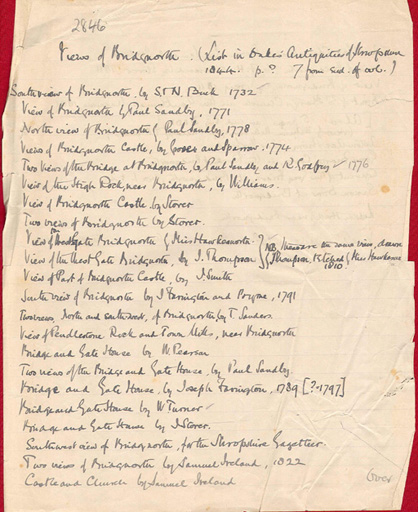 2846
Views of Bridgnorth. (List in Duke's Antiquities of Shropshire
1844. p. ? 7 from end of vol.)
South view of Bridgnorth, by S & N. Buck 1732
View of Bridgnorth by Paul Sandby, 1771
North view of Bridgnorth by Paul Sandby, 1778
Views of Bridgnorth Castle, by Grose and Sparrow. 1774
Two views of the Bridge at Bridgnorth, by Paul Sandby and R. Godfrey 1776
View of the High Rock, near Bridgnorth, by Williams.
View of Bridgnorth Castle by Storer
Two views of Bridgnorth by Storer.
View of Gate Bridgnorth by Miss Hawkesworth
View of the Gate Bridgnorth, by J. Thompson } NB. these are the same view, drawn by Thompson, Etched by Miss Hawkesworth 1810
View of Part of Bridgnorth Castle, by J. Smith
South view of Bridgnorth by J Farrington and Pouncy, 1791
Two views, North and south west, of Bridgnorth, by T. Sanders
View of Pendlestone Rock and Town Mills, near Bridgnorth
Bridge and Gate House by W. Pearson
Two views of the Bridge and Gate House, by Paul Sandby.
Bridge and Gate House, by Joseph Farington, 1789 [?-1797]
Bridge and Gate House by W Turner
Bridge and Gate House by J. Storer.
Southwest view of Bridgnorth, for the Shropshire Gazetteer.
Two views of Bridgnorth by Samuel Ireland, 1822
Castle and Church by Samuel Ireland
Over